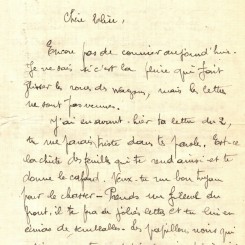 Chère Idrée,
Encore pas de courrier aujourd'hui.
Je ne sais si c'est la pluie qui fait
glisser les roues des wagons, mais les lettres
ne sont pas venues.
J'ai eu avant-hier ta lettre du 2,
tu me parais triste dans tes paroles. Est-ce
la chute des feuilles qui te rend ainsi et te
donne le cafard. Veux-tu un bon tuyau
pour le chasser - Prends un filleul du
front, il te fera de jolies lettres et tu lui en
de semblables. Les papillons noirs qui